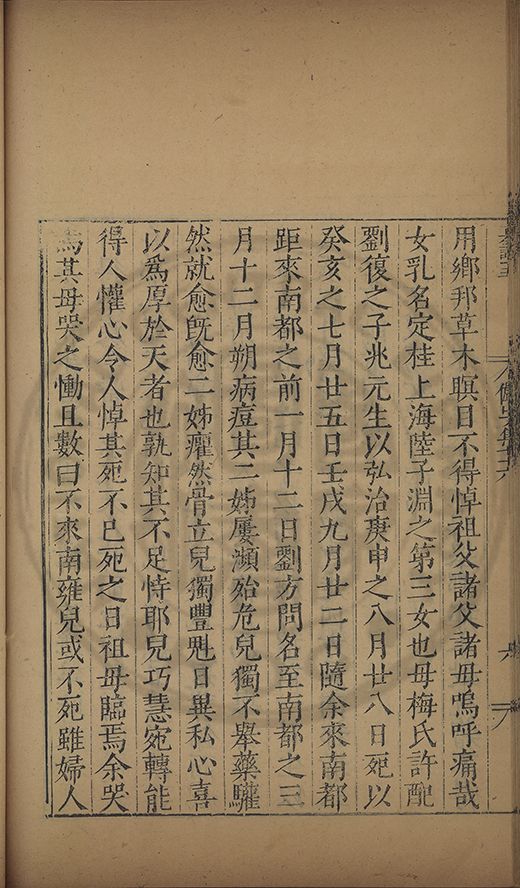 用鄉邦草木瞑目不得悼祖父諸父諸母嗚呼痛哉
女乳名定桂上海陸子淵之第三女也母梅氏許配
劉復之子兆元生以弘治庚申之八月廿八日死以
癸亥之七月廿五日壬戌九月廿二日隨余來南都
距來南都之前一月十二日劉方問名至南都之三
月十二月朔病痘其二姊屢瀕殆危兒獨不舉藥驩
然就愈既愈二姊癯然骨立兒獨豐魁日異私心喜
以為厚於天者也孰知其不足恃耶兒巧慧宛轉能
得人懽心令人悼其死不已死之日祖母臨焉余哭
為其母哭之慟且數曰不來南雍兒或不死雖婦人